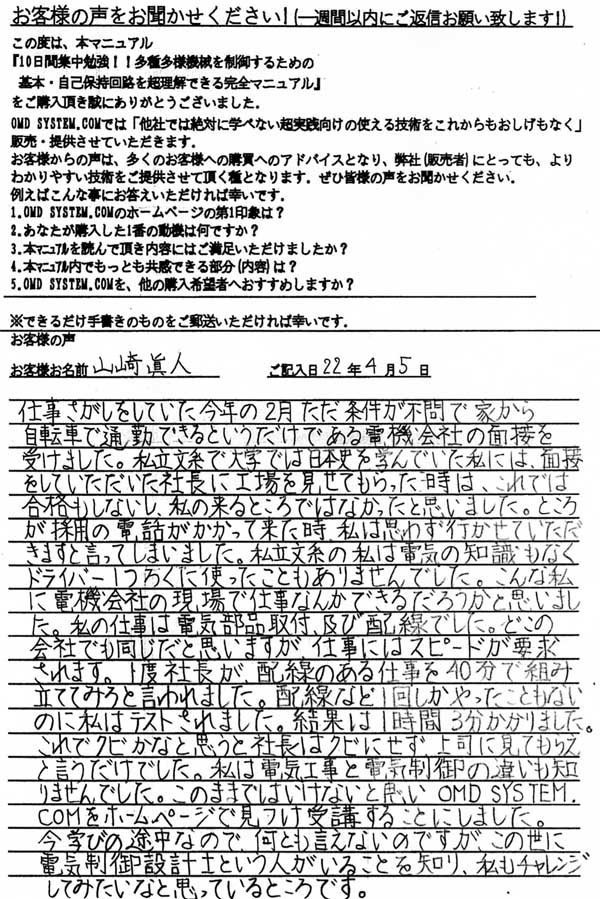 お客様の声をお聞かせください!(一週間以内にご返信お願い致します!)
この度は、本マニュアル
『10日間集中勉強!!多種多様機械を制御するための
基本・自己保持回路を超理解できる完全マニュアル』
をご購入頂き誠にありがとうございました。
OMD SYSTEM.COMでは「他社では絶対に学べない超実践向けの使える技術をこれからもおしげもなく」
販売・提供させていただきます。
お客様からの声は、多くのお客様への購買へのアドバイスとなり、弊社(販売者)にとっても、より
わかりやすい技術をご提供させて頂く種となります。ぜひ皆様の声をお聞かせください。
例えばこんな事にお答えいただければ幸いです。
1.OMD SYSTEM.COMのホームページの第1印象は?
2.あなたが購入した1番の動機は何ですか?
3.本マニュアルを読んで頂き内容にはご満足いただけましたか?
4.本マニュアル内でもっとも共感できる部分(内容)は?
5.OMD SYSTEM.COMを、他の購入希望者へおすすめしますか?
※できるだけ手書きのものをご郵送いただければ幸いです。
お客様の声
お客様お名前 山崎眞人 ご記入日 22年4月5日
仕事さがしをしていた今年の2月ただ条件が不問で家から
自転車で通勤できるというだけである電機会社の面接を
受けました。私立文系で大学では日本史を学んでいた私には、面接
をしていただいた社長に工場を見せてもらった時は、これでは
合格もしないし、私の来るところではなかったと思いました。ところ
が採用の電話がかかって来た時、私は思わず行かせていただ
きますと言ってしまいました。私立文系の私は電気の知識もなく
ドライバー1つろくに使ったこともありませんでした。こんな私
に電機会社の現場で仕事なんかできるだろうかと思いまし
た。私の仕事は電気部品取付、及び配線でした。どこの
会社でも同じだと思いますが、仕事にはスピードが要求
されます。1度社長が、配線のある仕事を40分で組み
立ててみろと言われました。配線など1回しかやったこともない
のに私はテストされました。結果は1時間3分かかりました。
これでクビかなと思うと社長はクビにせず上司に見てもらえ
と言うだけでした。私は電気工事と電気制御の違いも知
りませんでした。このままではいけないと思い OMD SYSTEM.
COMをホームページで見つけ受講することにしました。
今学びの途中なので、何とも言えないのですが、この世に
電気制御設計士という人がいることを知り、私もチャレンジ
してみたいなと思っているところです。